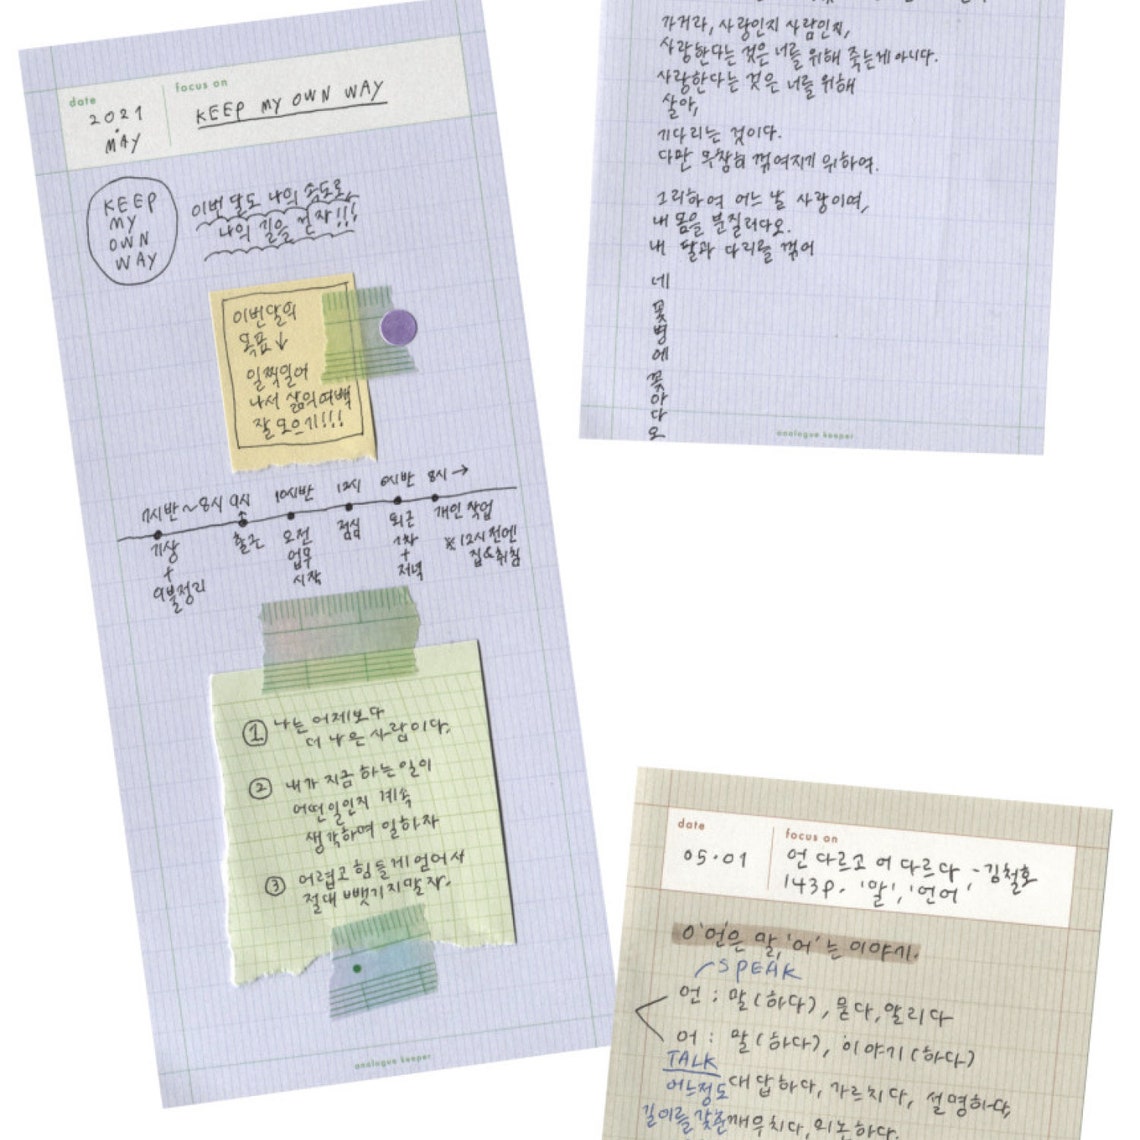 date
2021
MAY
focus on
KEEP MY OWN WAY
KEEP
MY
OWN
WAY
이번 달도 나의 속도로
나의 길을 걷자!!!
이번달의
목표↓
일찍일어
나서 삶의여백
잘 모으기!!!
7시반~8시 9시 10시반 12시 6시반 8시→
기상
+
이불정리
출근
오전
업무
시작
점심
퇴근
1차
+
저녁
개인 작업
※12시 전엔
집&취침
① 나는 어제보다
더 나은 사람이다.
② 내가 지금 하는 일이
어떤일인지 계속
생각하며 일하자
③ 어렵고 힘들게 얻어서
절대 뺏기지말자.
analogue keeper
가거라, 사랑인지 사람인지,
사랑한다는 것은 너를 위해 죽는게 아니다.
사랑한다는 것은 너를 위해
살아,
기다리는 것이다.
다만 무참히 꺾여지기 위하여.
그리하여 어느 날 사랑이여,
내 몸을 분질러다오.
내 팔과 다리를 꺾어
네
꽃
병
에
꽂
아
다
오
analogue keeper
date
05.01
focus on
언 다르고 어 다르다 - 김철호
143p. '말', '언어'
'언'은 말, '어'는 이야기.
SPEAK
언 : 말(하다), 묻다, 알리다
어 : 말(하다), 이야기(하다)
TALK
어느정도 대답하다, 가르치다, 설명하다,
길이를 갖춘 깨우치다, 의논하다.